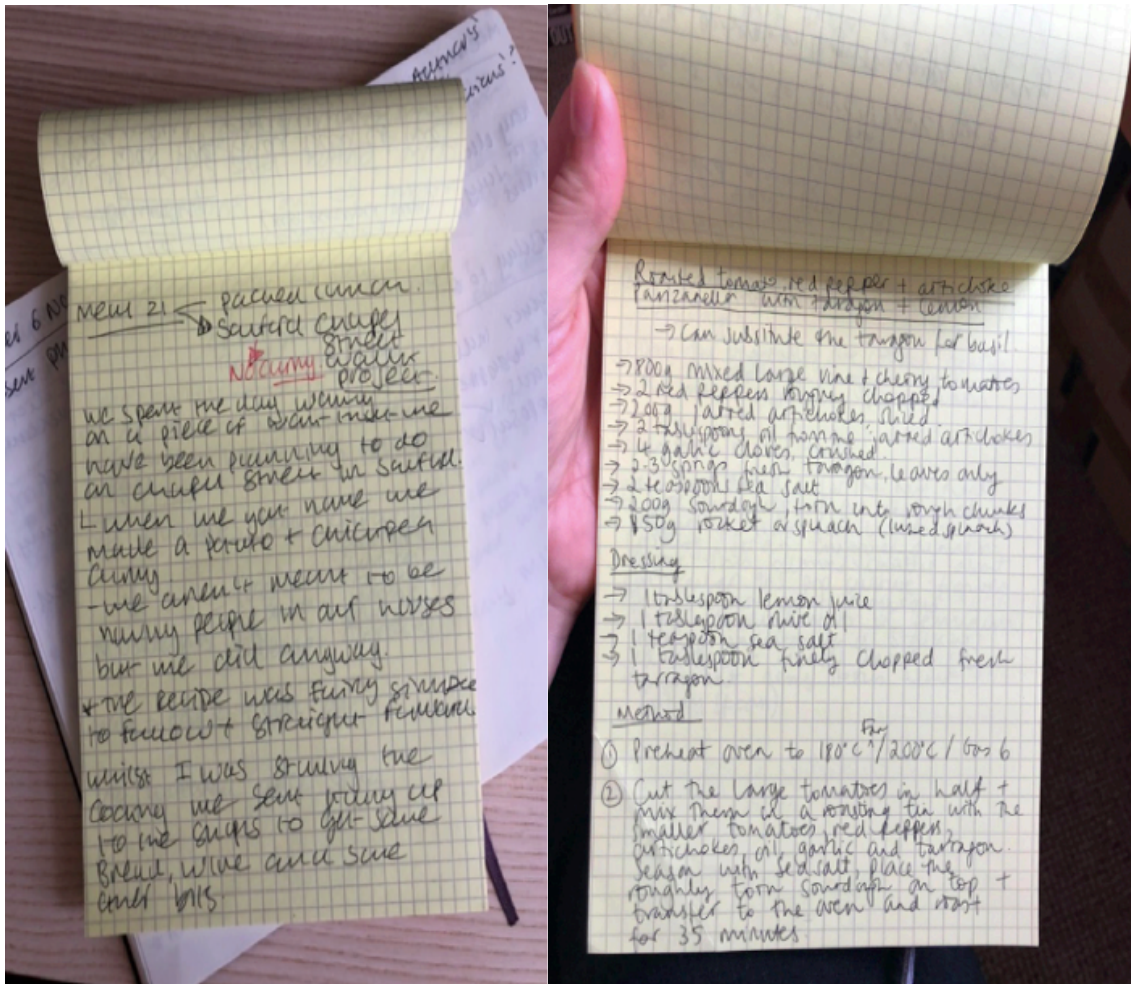 Author's
6 No
meal 21
packed lunch.
Salford Chapel
Street
Walk
project.
No Curry
we spent the day walking
on a piece of work that we
have been planning to do
on chapel street in Salford.
when we got home we
made a potato + chickpea
curry
- we aren't meant to be
having people in our houses
but we did anyway.
+ the recipe was fairly simple
to follow + straight forward
whilst I was starting the
cooking we sent up
to the shops to get some
Bread, wine and some
other bits.
OUT
Roasted tomato, red pepper + artichoke
Panzanella with tarragon + lemon
→ Can substitute the tarragon for basil.
→ 800g mixed large vine + cherry tomatoes
→ 2 red peppers roughly chopped
→ 200g jarred artichokes, sliced.
→ 2 tablespoons oil from the jarred artichokes
→ 4 garlic cloves, crushed.
→ 2-3 sprigs fresh tarragon, leaves only
→ 2 teaspoons sea salt
→ 200g sourdough, torn into rough chunks
→ 50g rocket or spinach (I used spinach)
Dressing
→ 1 tablespoon lemon juice
→ 1 tablespoon olive oil
→ 1 teaspoon sea salt
→ 1 tablespoon finely chopped fresh
tarragon.
Method
Fan
① Preheat oven to 180°C /200°C / Gas 6
② Cut the large tomatoes in half +
mix them in a roasting tin with the
smaller tomatoes, red peppers,
artichokes, oil, garlic and tarragon.
Season with sea salt, place the
roughly torn sourdough on top +
transfer to the oven and roast
for 35 minutes